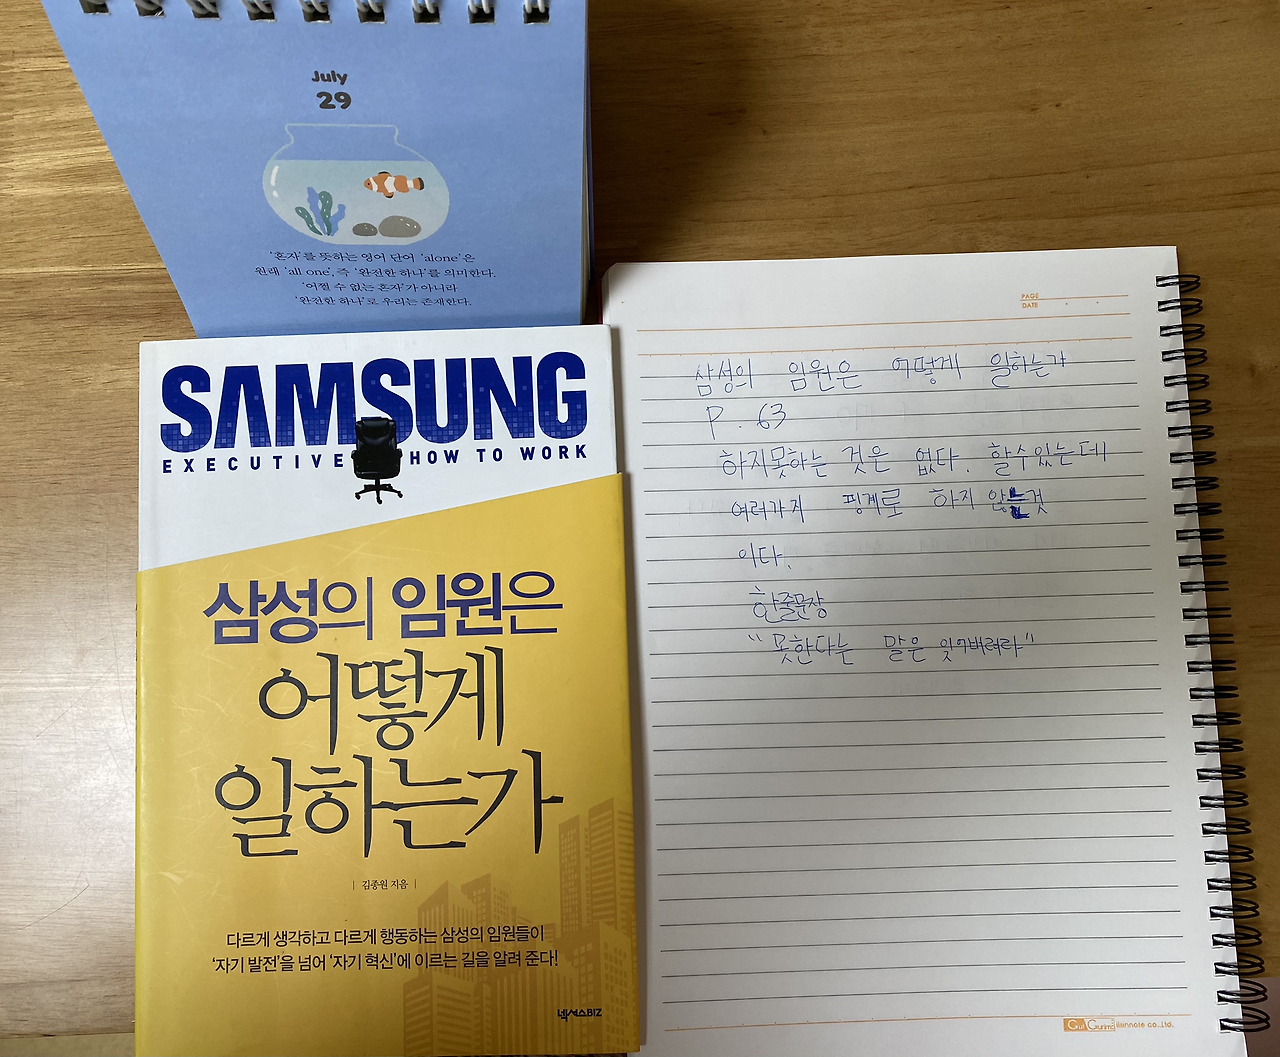 July
29
'혼자'를 뜻하는 영어 단어 'alone'은
원래 'all one', 즉 '완전한 하나'를 의미한다.
'어쩔 수 없는 혼자'가 아니라
'완전한 하나'로 우리는 존재한다.
SAMSUNG
EXECUTIVE HOW TO WORK
삼성의 임원은
어떻게
일하는가
| 김종원 지음 |
다르게 생각하고 다르게 행동하는 삼성의 임원들이
'자기 발전'을 넘어 '자기 혁신'에 이르는 길을 알려 준다!
넥서스BIZ
PAGE
DATE
삼성의 임원은 어떻게 일하는가
P. 63
하지못하는 것은 없다. 할수있는데
여러가지 핑계로 하지 않는것
이다.
한줄문장
"못한다는 말은 잊어버려라"